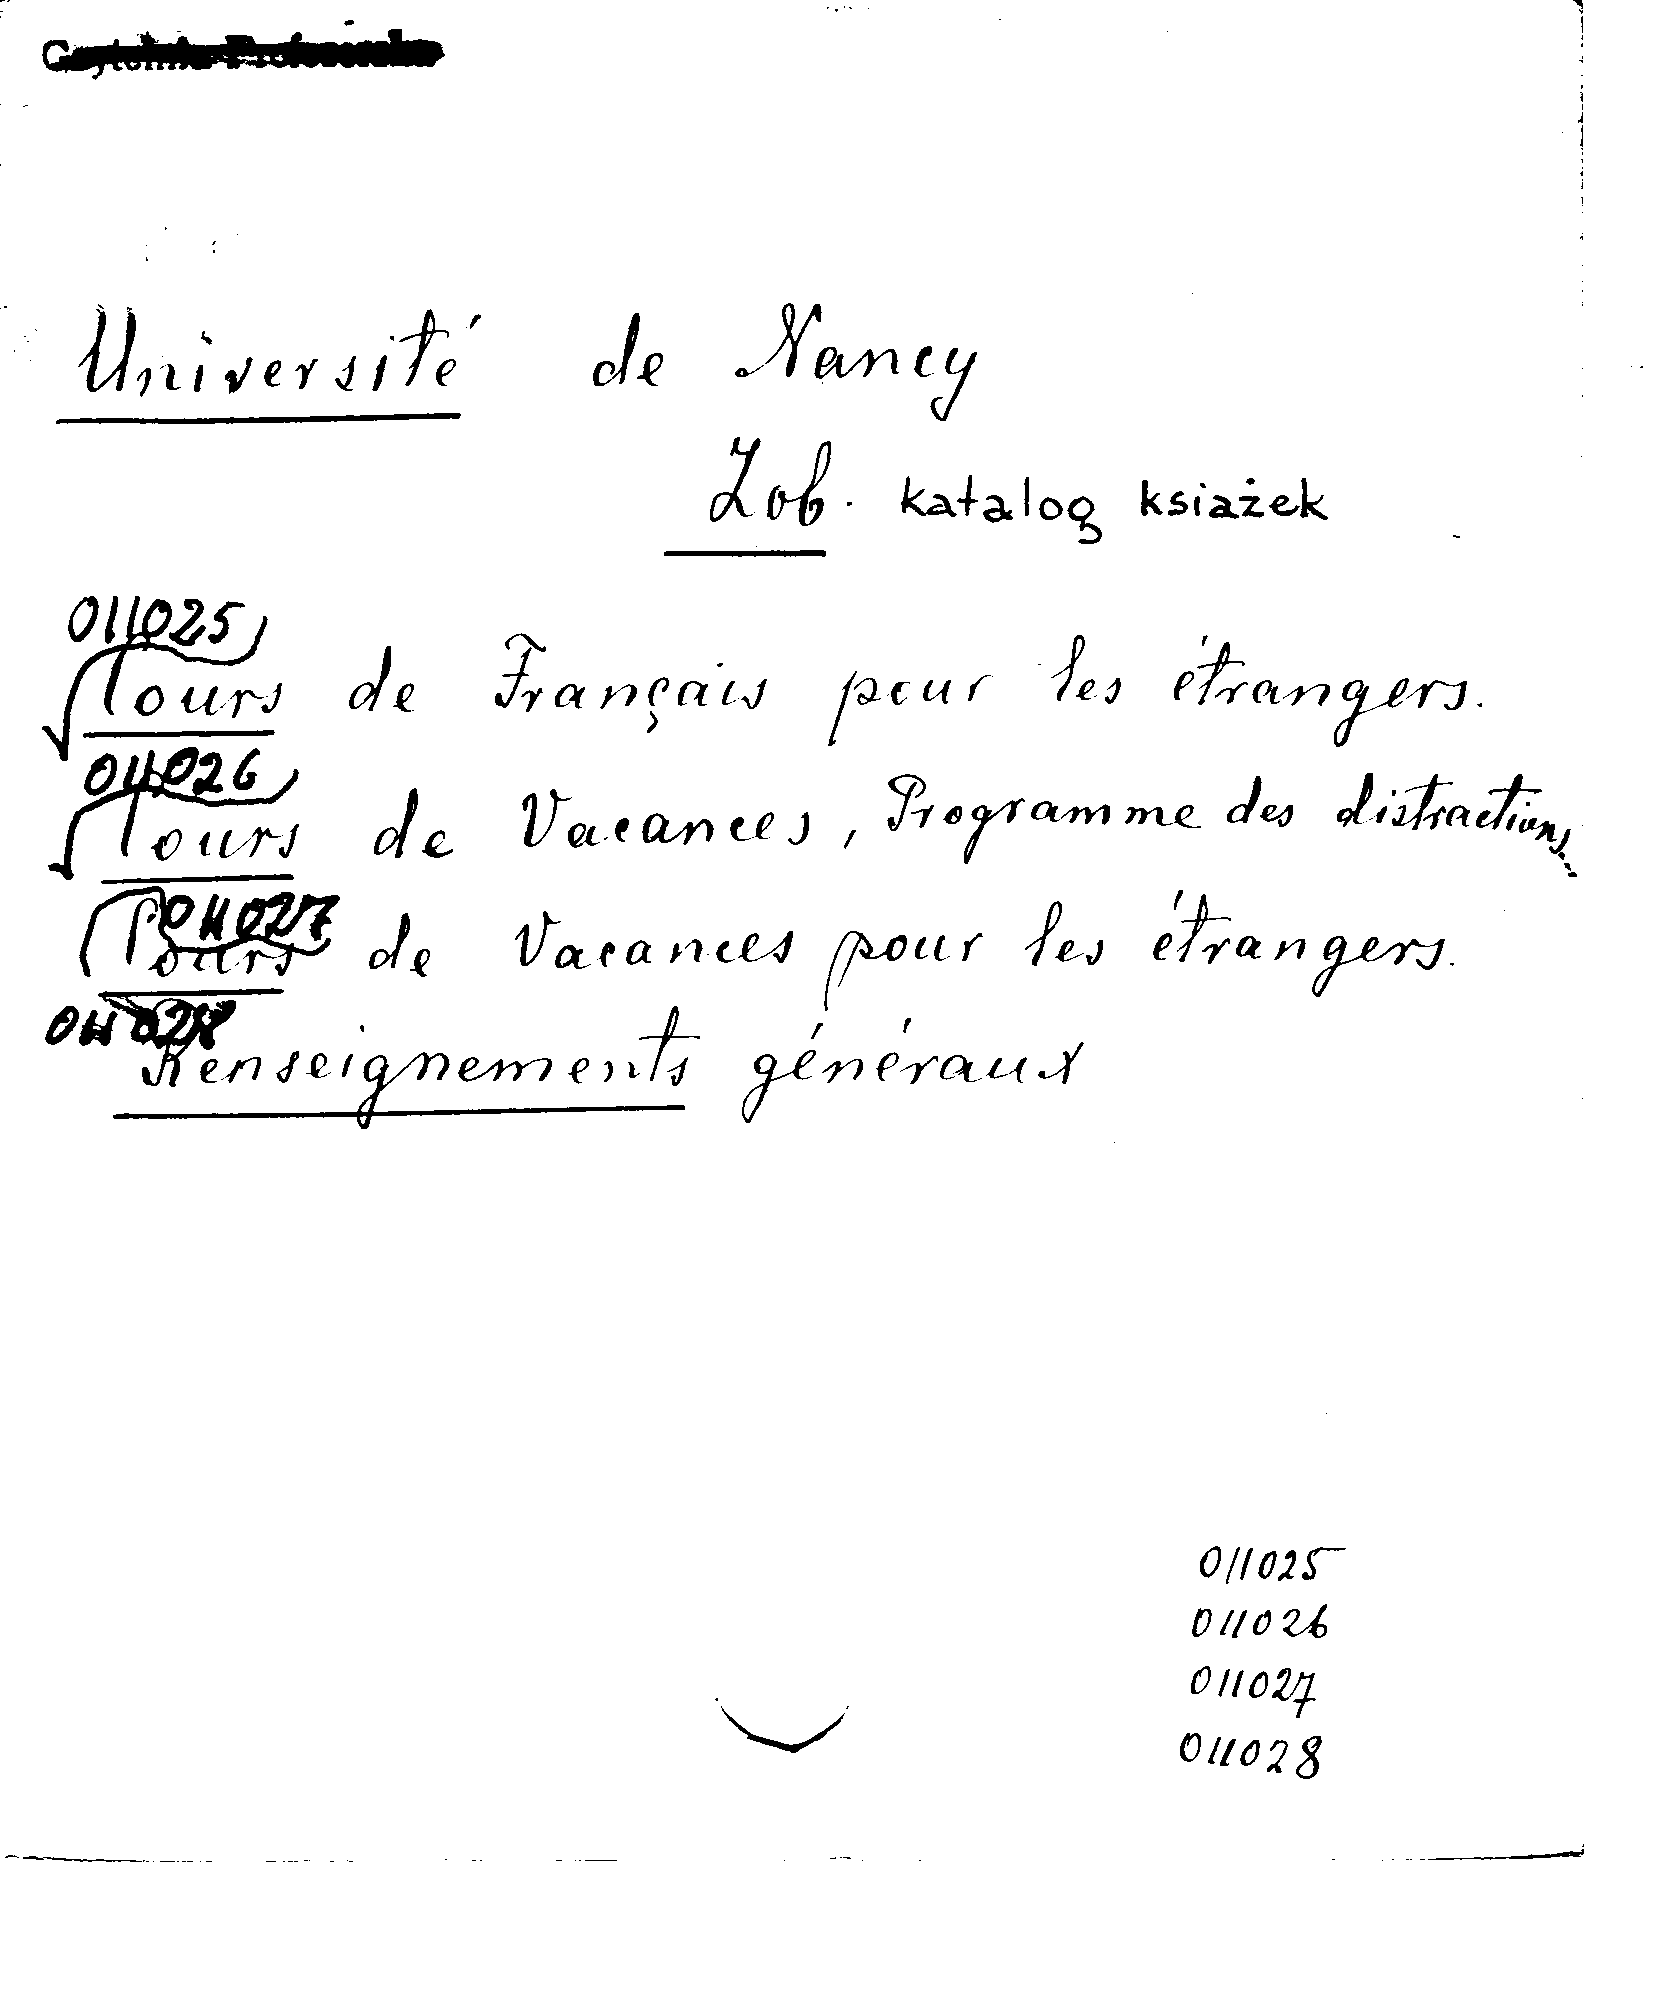 Université de Nancy
Zob. katalog ksiażek
011025
Cours de Français pour les étrangers.
011026
Cours de Vacances, Programme des distractions...
011027
Cours de Vacances pour les étrangers.
011028
Renseignements généraux
011025
011026
011027
011028